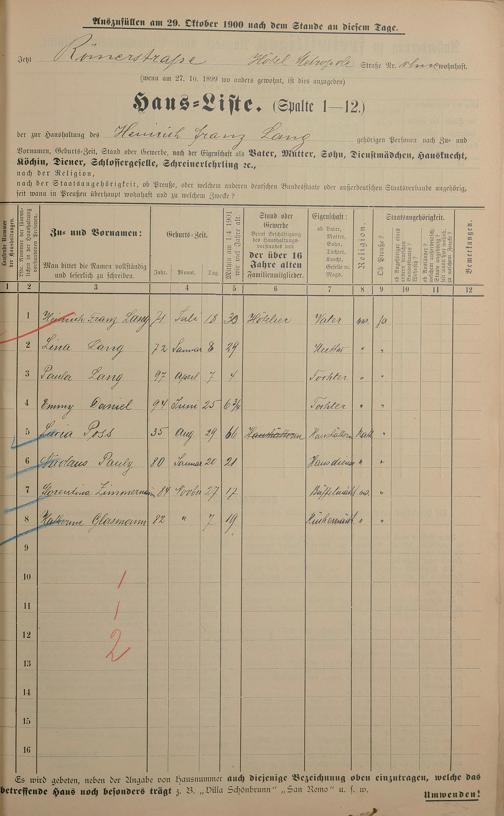 Auszufüllen am 29. Oktober 1900 nach dem Stande an diesem Tage.
Jetzt Römerstraße Hotel Metropole Straße Nr. ohne wohnhaft.
(wenn am 27. 10. 1899 wo anders gewohnt, ist dies anzugeben)
Haus-Liste. (Spalte 1—12.)
der zur Haushaltung des Heinrich Franz Lang gehörigen Personen nach Zu- und
Vornamen, Geburts-Zeit, Stand oder Gewerbe, nach der Eigenschaft als Vater, Mutter, Sohn, Dienstmädchen, Hausknecht,
Köchin, Diener, Schlossergeselle, Schreinerlehrling ꝛc.,
nach der Religion,
nach der Staatsangehörigkeit, ob Preuße, oder welchem anderen deutschen Bundesstaate oder außerdeutschen Staatsverbande angehörig,
seit wann in Preußen überhaupt wohnhaft und zu welchem Zwecke?
Zu- und Vornamen:
Man bittet die Namen vollständig
und leserlich zu schreiben.
Geburts-Zeit.
Jahr. Monat. Tag.
Stand oder
Gewerbe
der über 16
Jahre alten
Familienmitglieder.
Eigenschaft:
ob Vater,
Mutter,
Sohn,
Religion.
Staatsangehörigkeit.
Ob Preuße?
Bemerkungen.
1 2 3 4 5 6 7 8 9 10 11 12
1 Heinrich Franz Lang 71 Juli 18 Hotelier Vater ev. ja
2 Lina Lang 72 Januar 8 29 Mutter " "
3 Paula Lang 97 April 7 4 Tochter " "
4 Emmy Daniel 94 Juni 25 6¾ Tochter " "
5 Poss 35 Aug 29 66 Kath "
6 Nicolaus Pauly 80 Januar 20 21 Hausdiener " "
7 Zimmermann 84 Novbr 27 17 ev. "
8 Katharine Glasmann 82 " 7 19 " "
9
10
11
12
13
14
15
16
1
1
2
Es wird gebeten, neben der Angabe von Hausnummer auch diejenige Bezeichnung oben einzutragen, welche das
betreffende Haus noch besonders trägt z. B. „Villa Schönbrunn" „San Remo" u. s. w.
Umwenden!